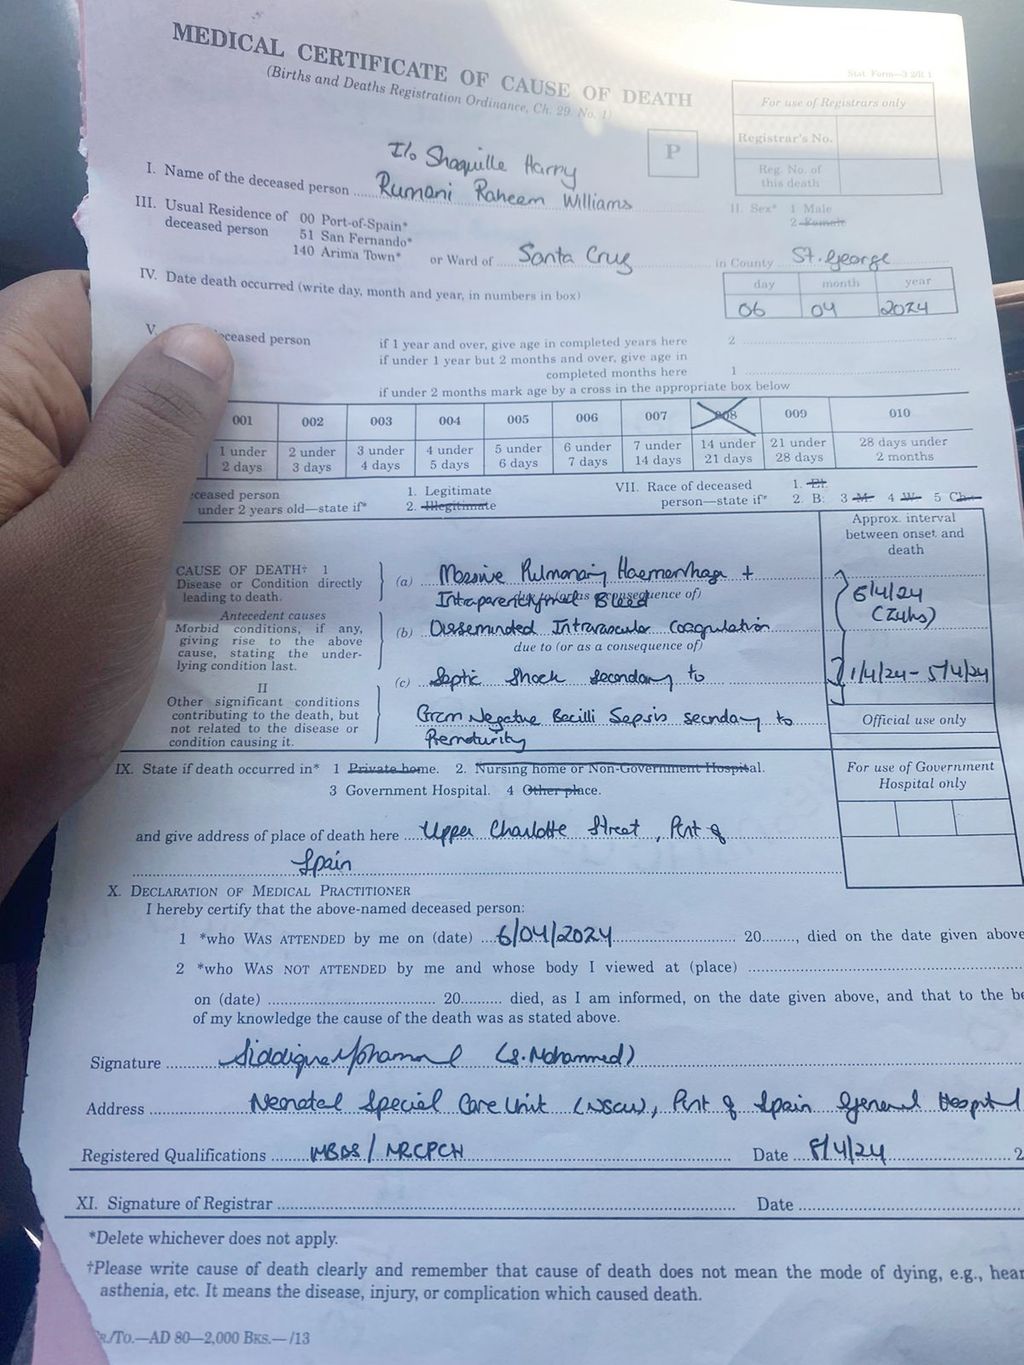 MEDICAL CERTIFICATE OF CAUSE OF DEATH
(Births and Deaths Registration Ordinance, Ch. 29 No. 1)
Stat. Form—3
For use of Registrars only
Registrar's No.
Reg. No. of this death
P
I/o Shaquille Harry
I. Name of the deceased person Rumani Raheem Williams
II. Sex* 1 Male
2 Female
III. Usual Residence of deceased person
00 Port-of-Spain*
51 San Fernando*
140 Arima Town*
or Ward of Santa Cruz in County St. George
IV. Date death occurred (write day, month and year, in numbers in box)
day month year
06 04 2024
V. deceased person
if 1 year and over, give age in completed years here 2
if under 1 year but 2 months and over, give age in
completed months here 1
if under 2 months mark age by a cross in the appropriate box below
001 002 003 004 005 006 007 008 009 010
1 under 2 days
2 under 3 days
3 under 4 days
4 under 5 days
5 under 6 days
6 under 7 days
7 under 14 days
14 under 21 days
21 under 28 days
28 days under 2 months
ceased person
under 2 years old—state if*
1. Legitimate
2. Illegitimate
VII. Race of deceased
person—state if*
1. EI.
2. B: 3 M 4 W 5 Ch.
Approx. interval between onset and death
CAUSE OF DEATH† 1
Disease or Condition directly leading to death.
(a) Massive Pulmonary Haemorrhage +
Intraparenchymal Bleed
as consequence of)
6/4/24
Antecedent causes
Morbid conditions, if any, giving rise to the above cause, stating the underlying condition last.
(b) Disseminated Intravascular Coagulation
due to (or as a consequence of)
(c) Septic Shock secondary to
1/4/24 - 5/4/24
II
Other significant conditions contributing to the death, but not related to the disease or condition causing it.
Gram Negative Bacilli Sepsis secondary to
Prematurity
Official use only
IX. State if death occurred in* 1 Private home. 2. Nursing home or Non-Government Hospital.
3 Government Hospital. 4 Other place.
For use of Government Hospital only
and give address of place of death here Upper Charlotte Street, Port of
Spain
X. DECLARATION OF MEDICAL PRACTITIONER
I hereby certify that the above-named deceased person:
1 *who WAS ATTENDED by me on (date) 6/04/2024 20........, died on the date given above
2 *who WAS NOT ATTENDED by me and whose body I viewed at (place)
on (date) 20.......... died, as I am informed, on the date given above, and that to the be
of my knowledge the cause of the death was as stated above.
Signature Siddique Mohammed (S. Mohammed)
Address Neonatal Special Care Unit (NSCU), Port of Spain General Hospital
Registered Qualifications MBBS / MRCPCH Date 8/4/24 2
XI. Signature of Registrar Date
*Delete whichever does not apply.
†Please write cause of death clearly and remember that cause of death does not mean the mode of dying, e.g., hear
asthenia, etc. It means the disease, injury, or complication which caused death.
/TO.—AD 80—2,000 BKS.— /13